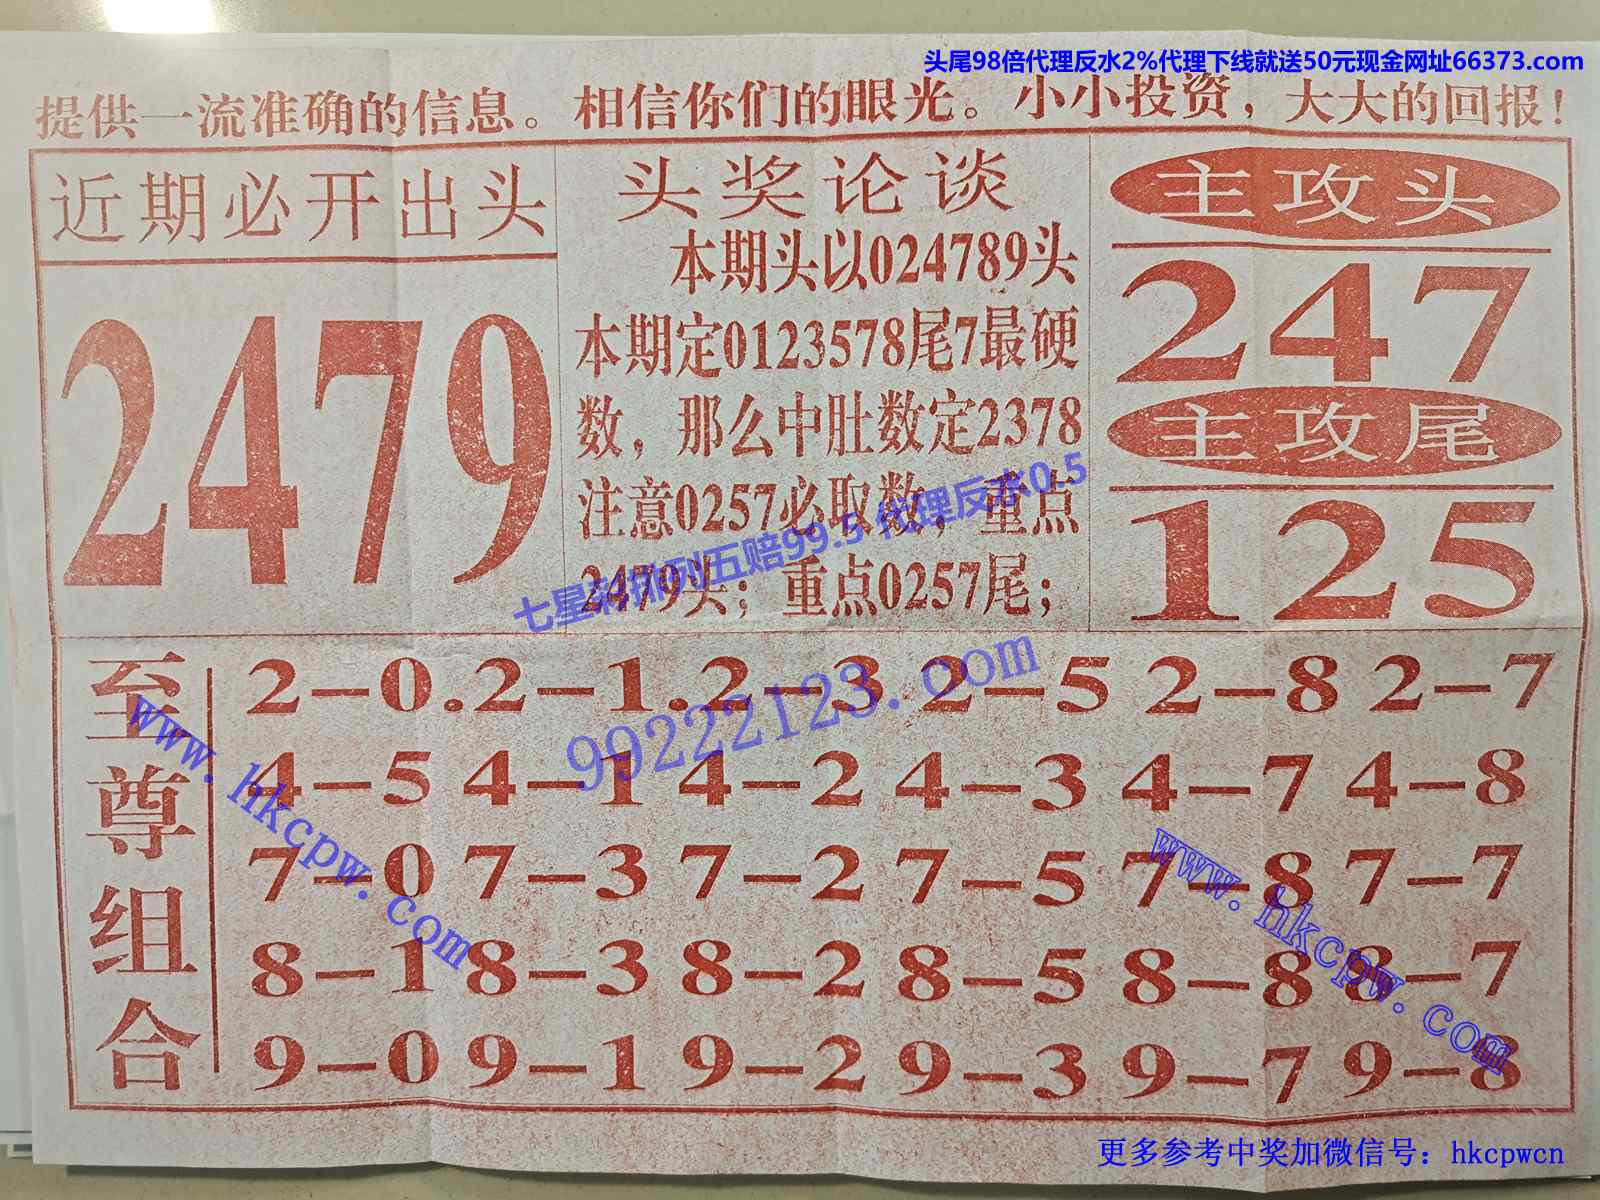 头尾98倍代理反水2%代理下线就送50元现金网址66373.com
提供一流准确的信息。相信你们的眼光。小小投资，大大的回报！
近期必开出头
2479
头奖论谈
本期头以024789头
本期定0123578尾7最硬
数，那么中肚数定2378
注意0257必取数，重点
2479头；重点0257尾；
主攻头
247
主攻尾
125
七星彩排列五赔99.5 代理反水0.5
99222123.com
至尊组合
2—0.2—1.2—3 2—5 2—8 2—7
4—5 4—1 4—2 4—3 4—7 4—8
7—0 7—3 7—2 7—5 7—8 7—7
8—1 8—3 8—2 8—5 8—8 8—7
9—0 9—1 9—2 9—3 9—7 9—8
www.hkcpw.com
www.hkcpw.com
更多参考中奖加微信号：hkcpwcn